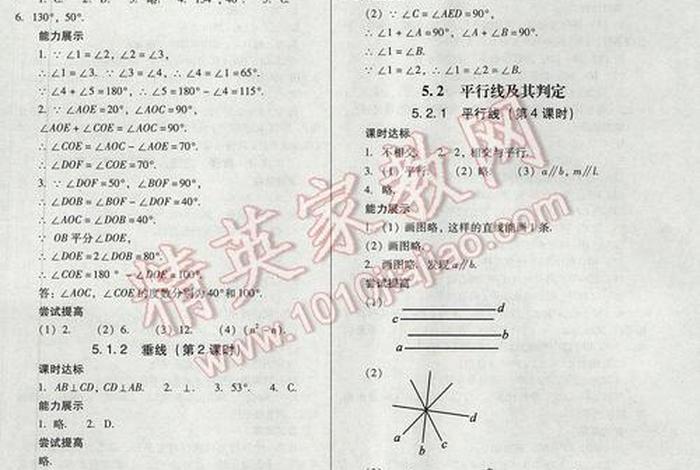 6. 130°, 50°.
能力展示
1. ∵ ∠1=∠2, ∠2=∠3,
∴ ∠1=∠3. ∵ ∠1=∠4, ∴ ∠4=∠1=65°.
∵ ∠4+∠5=180°, ∴ ∠5=180°-∠4=115°.
2. ∵ ∠AOE=20°, ∠AOC=90°,
∠AOE+∠COE=∠AOC=90°.
∴ ∠COE=∠AOC-∠AOE=70°.
∴ ∠DOF=∠COE=70°.
3. ∵ ∠DOF=50°, ∠BOF=90°,
∴ ∠DOB=∠BOF-∠DOF=40°.
∴ ∠AOC=∠DOB=40°.
∵ OB平分∠DOE,
∴ ∠DOE=2∠DOB=80°.
∴ ∠COE=180°-∠DOE=100°.
答: ∠AOC, ∠COE的度数分别为40°和100°.
尝试提高
(1) 2. (2) 6. (3) 12. (4) (n²-n).
5.1.2 垂线(第2课时)
课时达标
1. AB⊥CD, CD⊥AB. 2. ⊥. 3. 53°. 4. C.
能力展示
1. 略. 2. D.
尝试提高
略.
(2) ∵ ∠C=∠AED=90°,
∴ ∠1+∠A=90°, ∠A+∠B=90°.
∴ ∠1=∠B.
∵ ∠1=∠2, ∴ ∠1=∠2=∠B.
5.2 平行线及其判定
5.2.1 平行线(第4课时)
课时达标
1. 不相交. 2. 2, 相交与平行.
3. (1) 平行. (2) 略. (3) a∥b, m∥l.
4. 略.
能力展示
1. (1) 画图略, 这样的直线能画1条.
(2) 画图略.
2. 画图略. 发现a∥b.
尝试提高
(1)
d
c
b
a
(2)
d
a
b
c
精英家教网
www.1010jiajiao.com